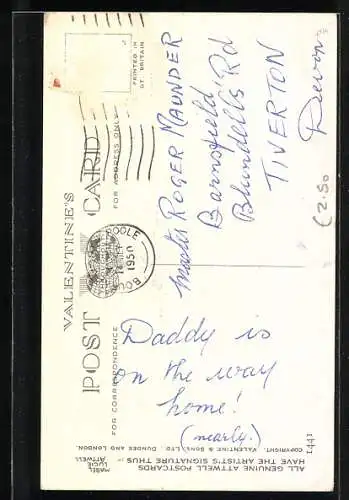 VALENTINE'S
POST CARD
FOR CORRESPONDENCE
FOR ADDRESS ONLY
PRINTED IN
GT. BRITAIN
POOLE
1950
BOU
Daddy is
on the way
home!
(nearly.)
Master ROGER MAUNDER
Barnsfield
Blundells Rd
TIVERTON
Devon
£2.50
1441
ALL GENUINE ATTWELL POSTCARDS
HAVE THE ARTIST'S SIGNATURE THUS :-
MABEL
LUCIE
ATTWELL
COPYRIGHT. VALENTINE & SONS, LTD. DUNDEE AND LONDON.